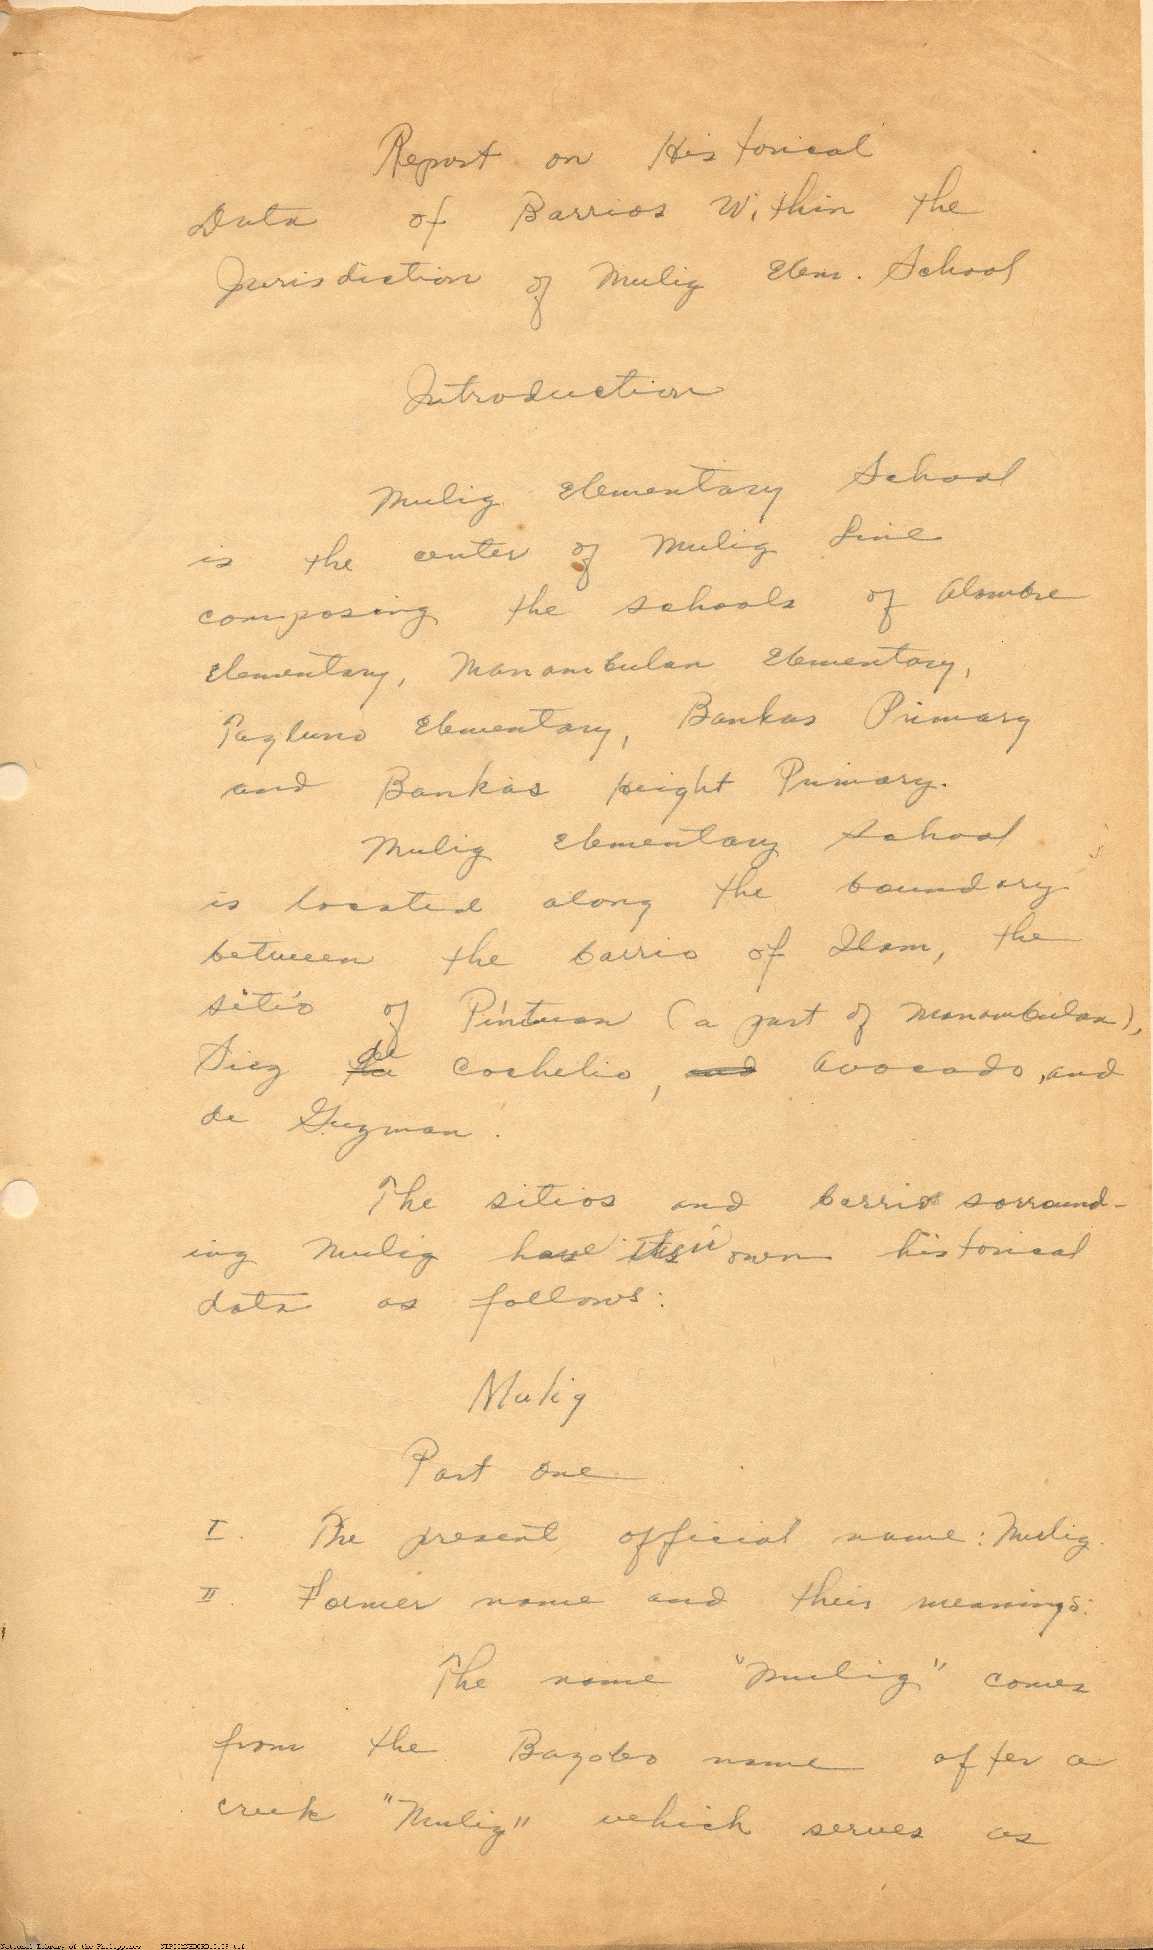 Report on Historical
Data of Barrios Within the
Jurisdiction of Mulig Elem. School
Introduction
Mulig Elementary School
is the center of Mulig Line
composing the schools of Alambre
Elementary, Manambulan Elementary,
Tagluno Elementary, Bankas Primary
and Bankas Height Primary.
Mulig Elementary School
is located along the boundary
between the barrio of Ilam, the
sitio of Pintuan (a part of Manambulan),
de Cochelio, and Avocado, and
de Guzman.
The sitios and barrio sorround-
ing Mulig have their own historical
data as follows:
Mulig
Part One
I. The present official name: Mulig.
II. Former name and their meanings:
The name "Mulig" comes
from the Bagobo name after a
creek "Mulig" which serves as
National Library of the Philippines